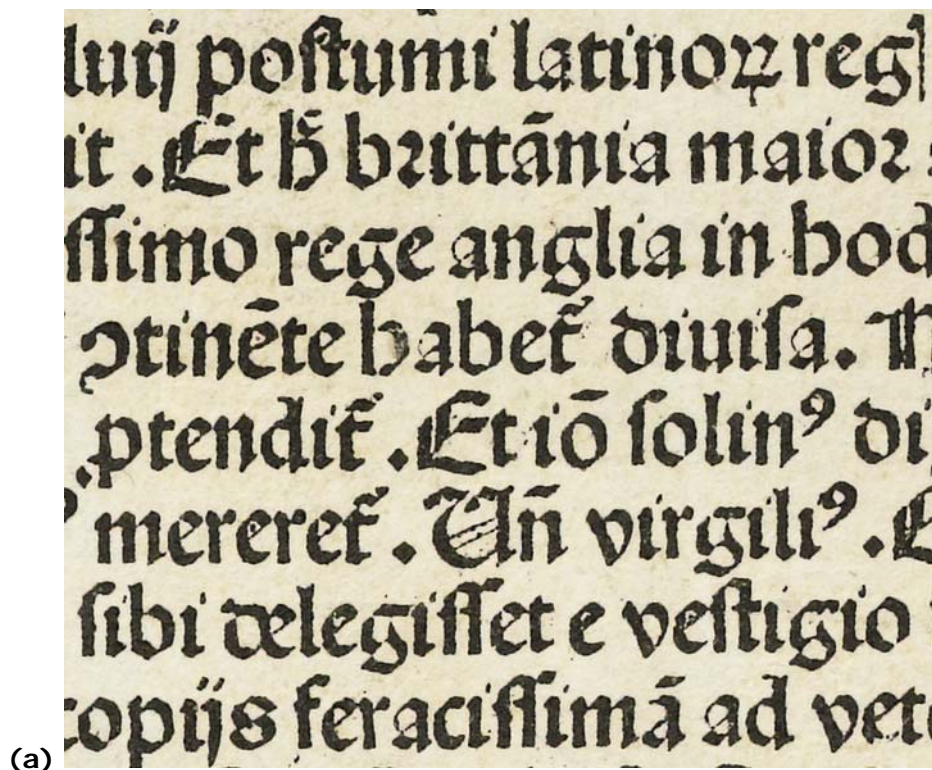 luij poſtumi latinoꝝ reg
it . Et h̄ brittānia maior :
ſſimo rege anglia in hod
ↄtinēte habet᷑ diuiſa. 
ꝓtendit᷑ . Et iō ſolinꝰ di
ꝰ mereret᷑ . Un̄ virgiliꝰ .
ſibi delegiſſet e veſtigio
copijs feraciſſimā ad vete
(a)